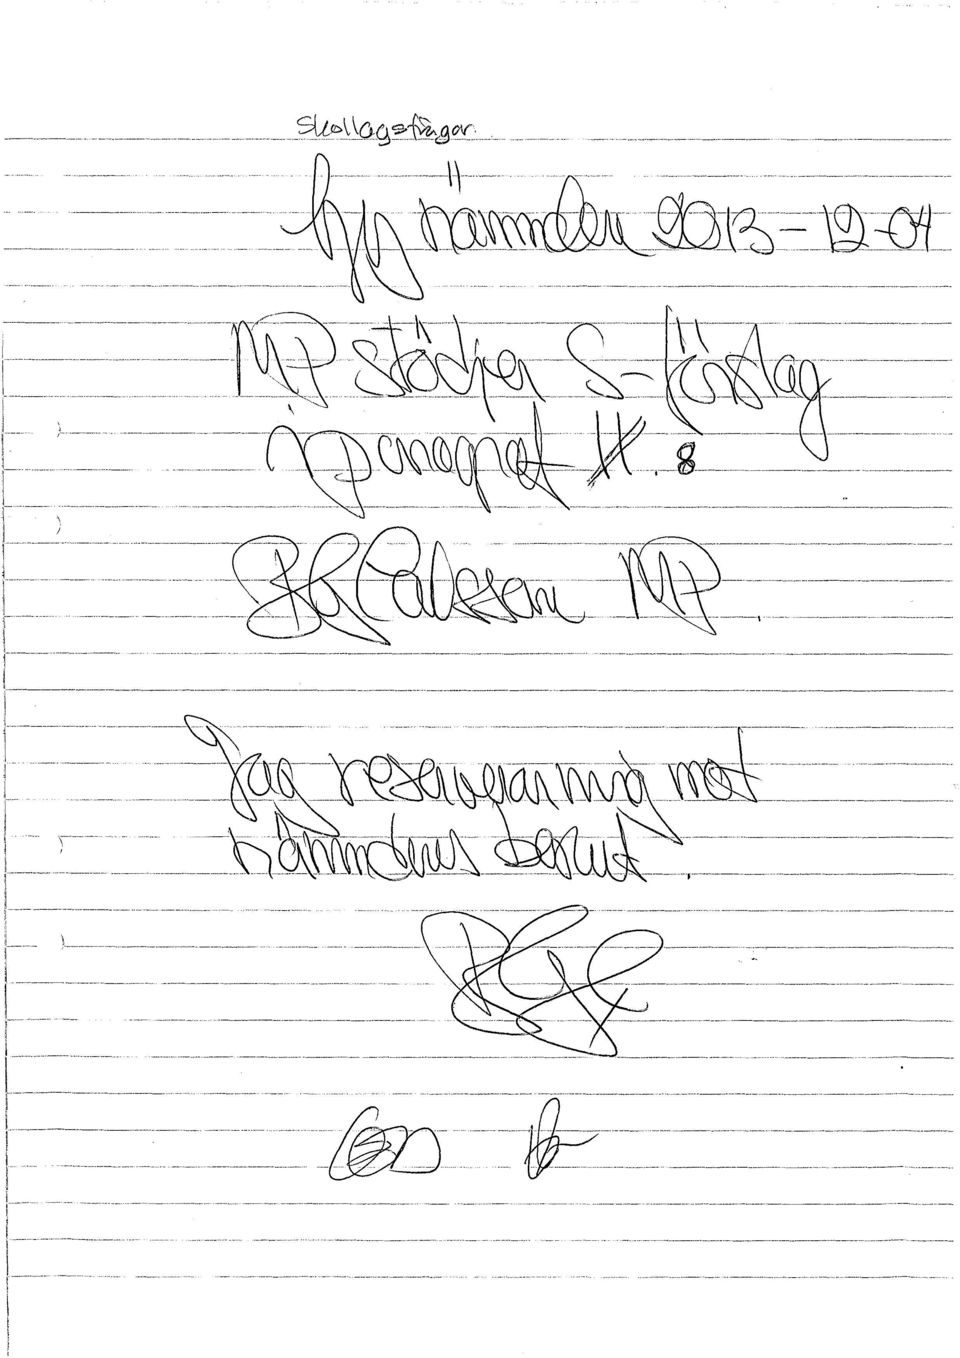 Skollagsfrågor.
nämnden 2013-12-04
MP stödjer S-förslag
i paragraf 8
BG Carlsson MP.
Jag reserverar mig mot
nämndens beslut.